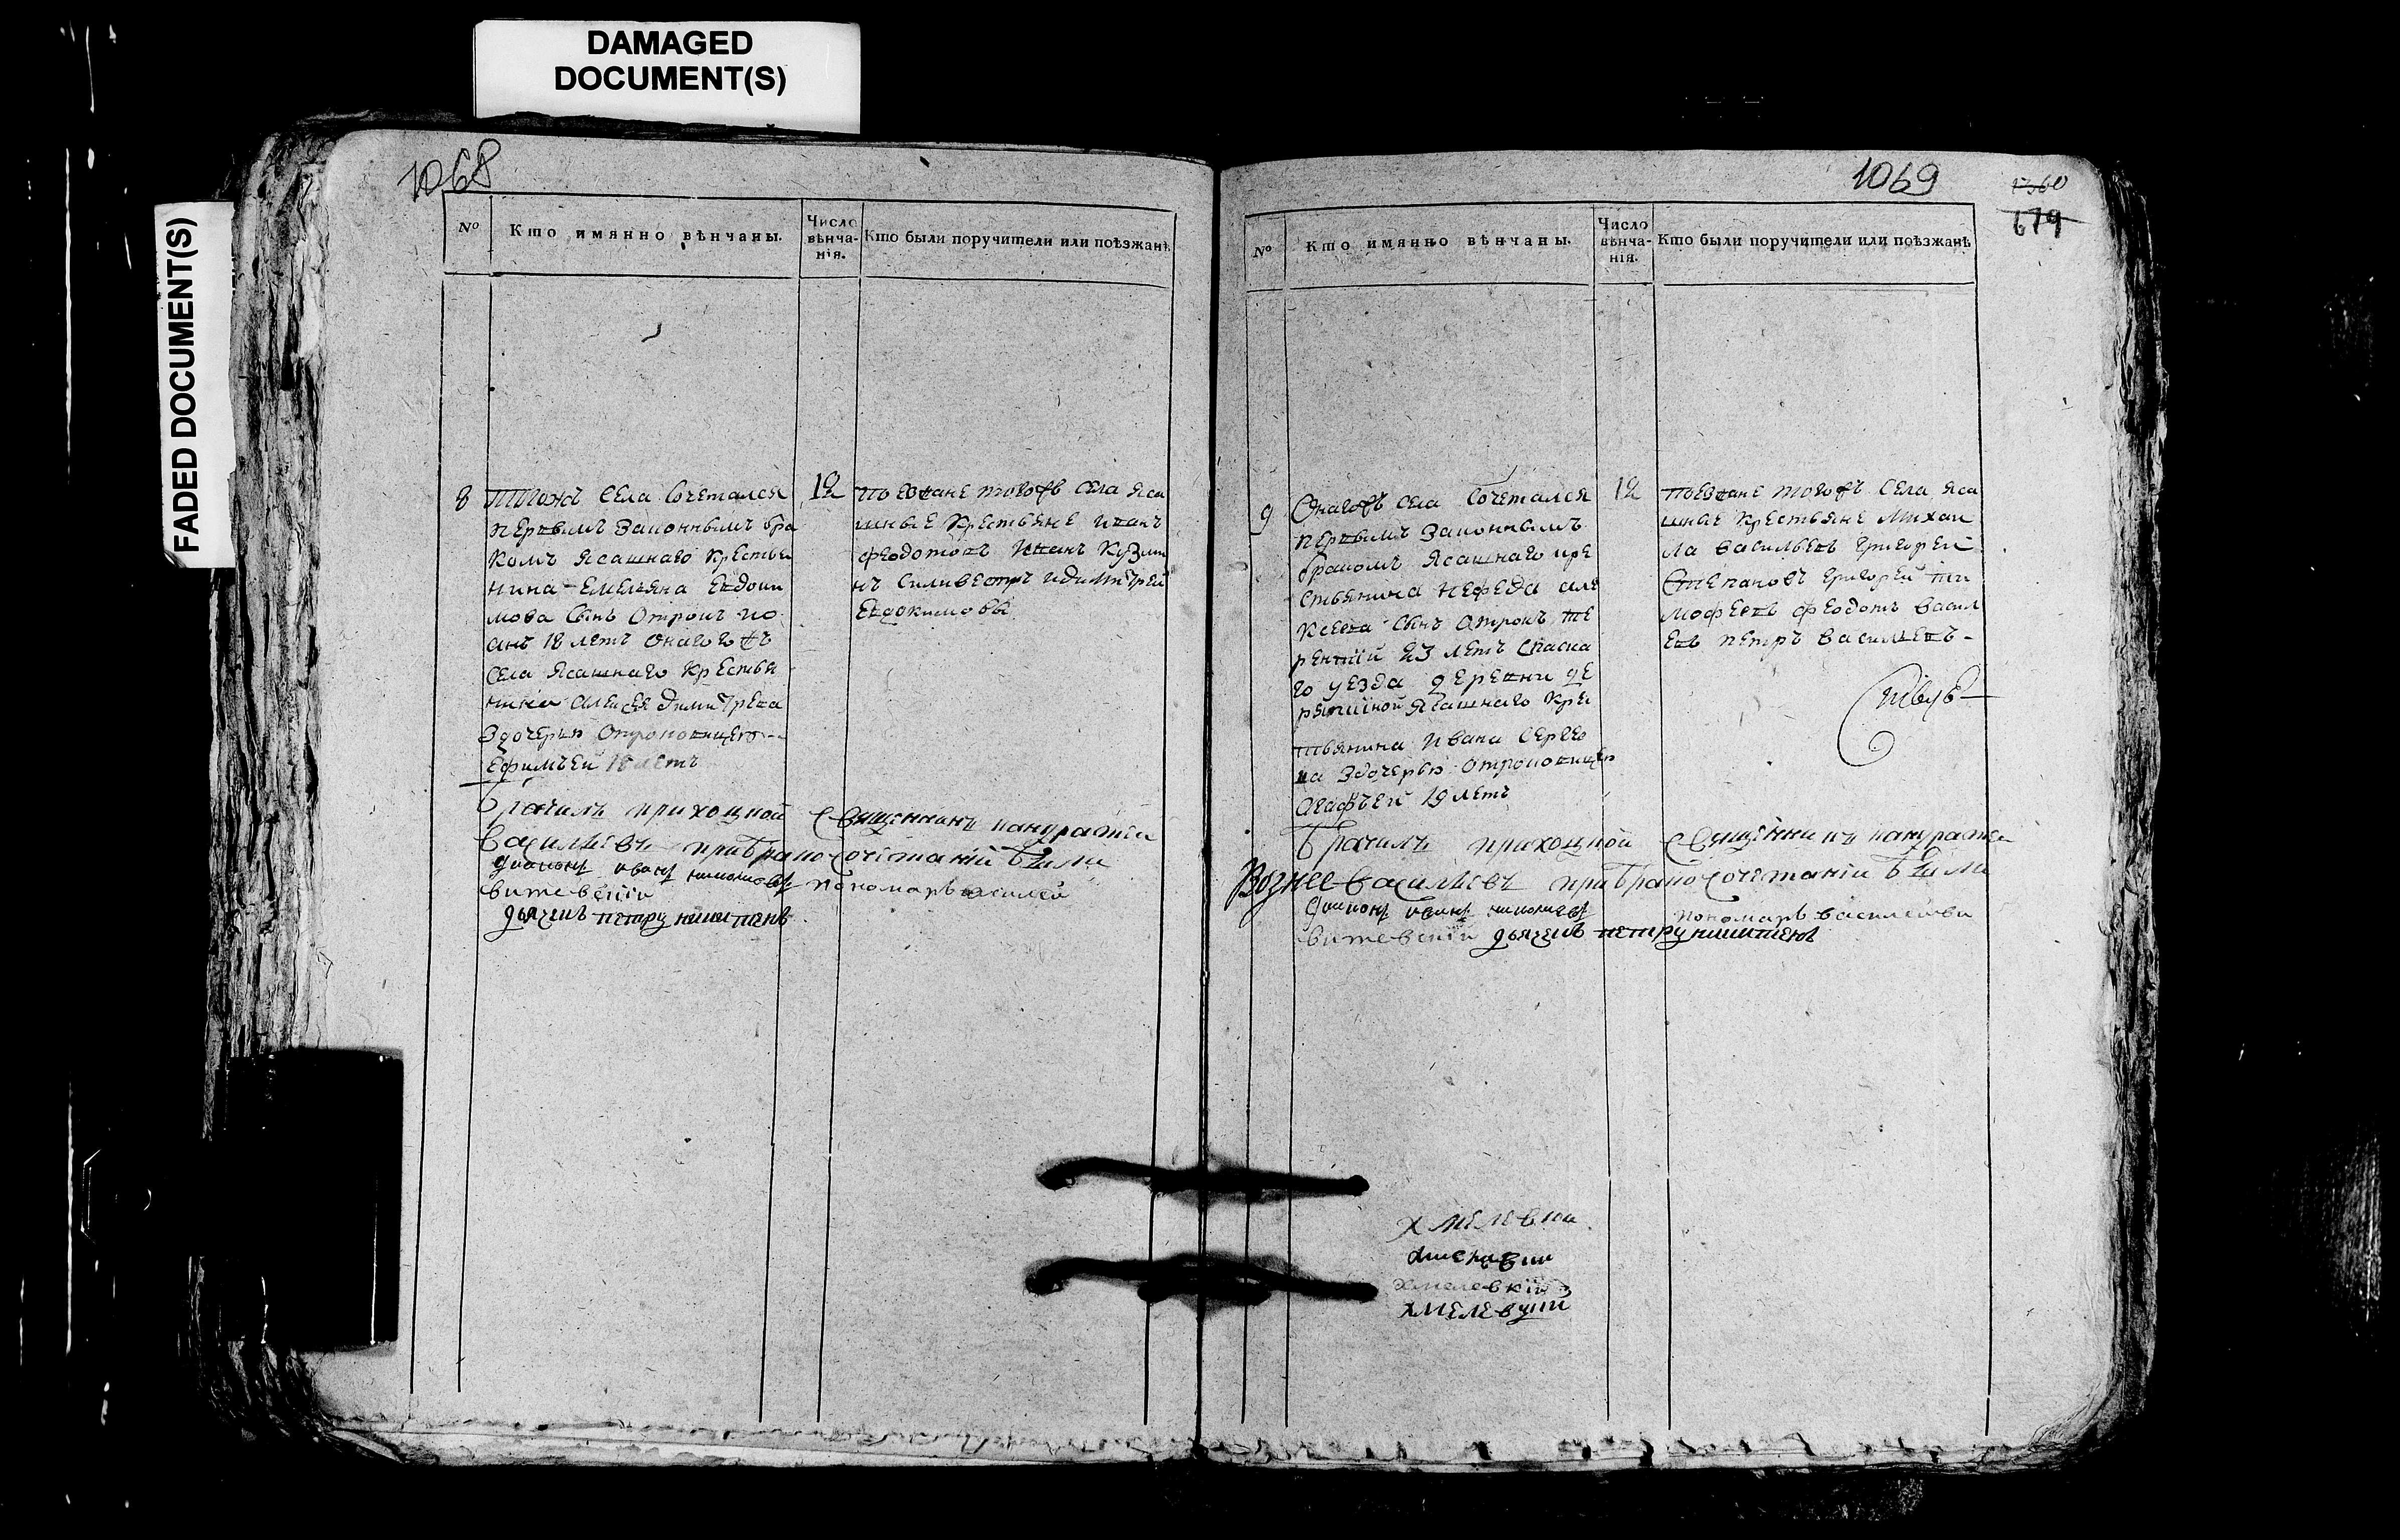 DAMAGED
DOCUMENT(S)
FADED DOCUMENT(S)
1068
№
Кто имянно вѣнчаны.
Число
вѣнча-
нія.
Кто были поручители или поѣзжанѣ
8
Тогожъ села сочетался
первымъ законнымъ бра
комъ ясашнаго крестья
нина Емельяна Евдоки
мова сынъ отрокъ ио
анъ 18 летъ онагожъ
села ясашнаго крестья
нина алексея димитрева
здочерью отроковицею
Ефимъей 18 летъ
12
поезжане тогожъ села яса
шные крестьяне иванъ
феодотовъ иванъ кузми
нъ силивестръ идимитрей
Евдокимовы
Брачилъ приходной священникъ
васильевъ при бракосочетаніи были
диаконъ иванъ пономарь василей
дьячекъ петръ
1069
1360
679
№
Кто имянно вѣнчаны.
Число
вѣнча-
нія.
Кто были поручители или поѣзжанѣ
9
Онагожъ села сочетался
первымъ законнымъ
бракомъ ясашнаго кре
стьянина нефеда але
ксеева сынъ отрокъ те
рентий 23 летъ спаска
го уезда деревни
ясашнаго кре
стьянина ивана сергее
ва здочерью отроковицею
агафъей 19 летъ
12
поезжане тогожъ села яса
шные крестьяне михаи
ла васильевъ григорей
степановъ григорей ти
мофеевъ феодотъ васил
евъ петръ васильевъ
Брачилъ приходной священникъ
васильевъ при бракосочетаніи были
диаконъ иванъ пономарь василей
дьячекъ петръ